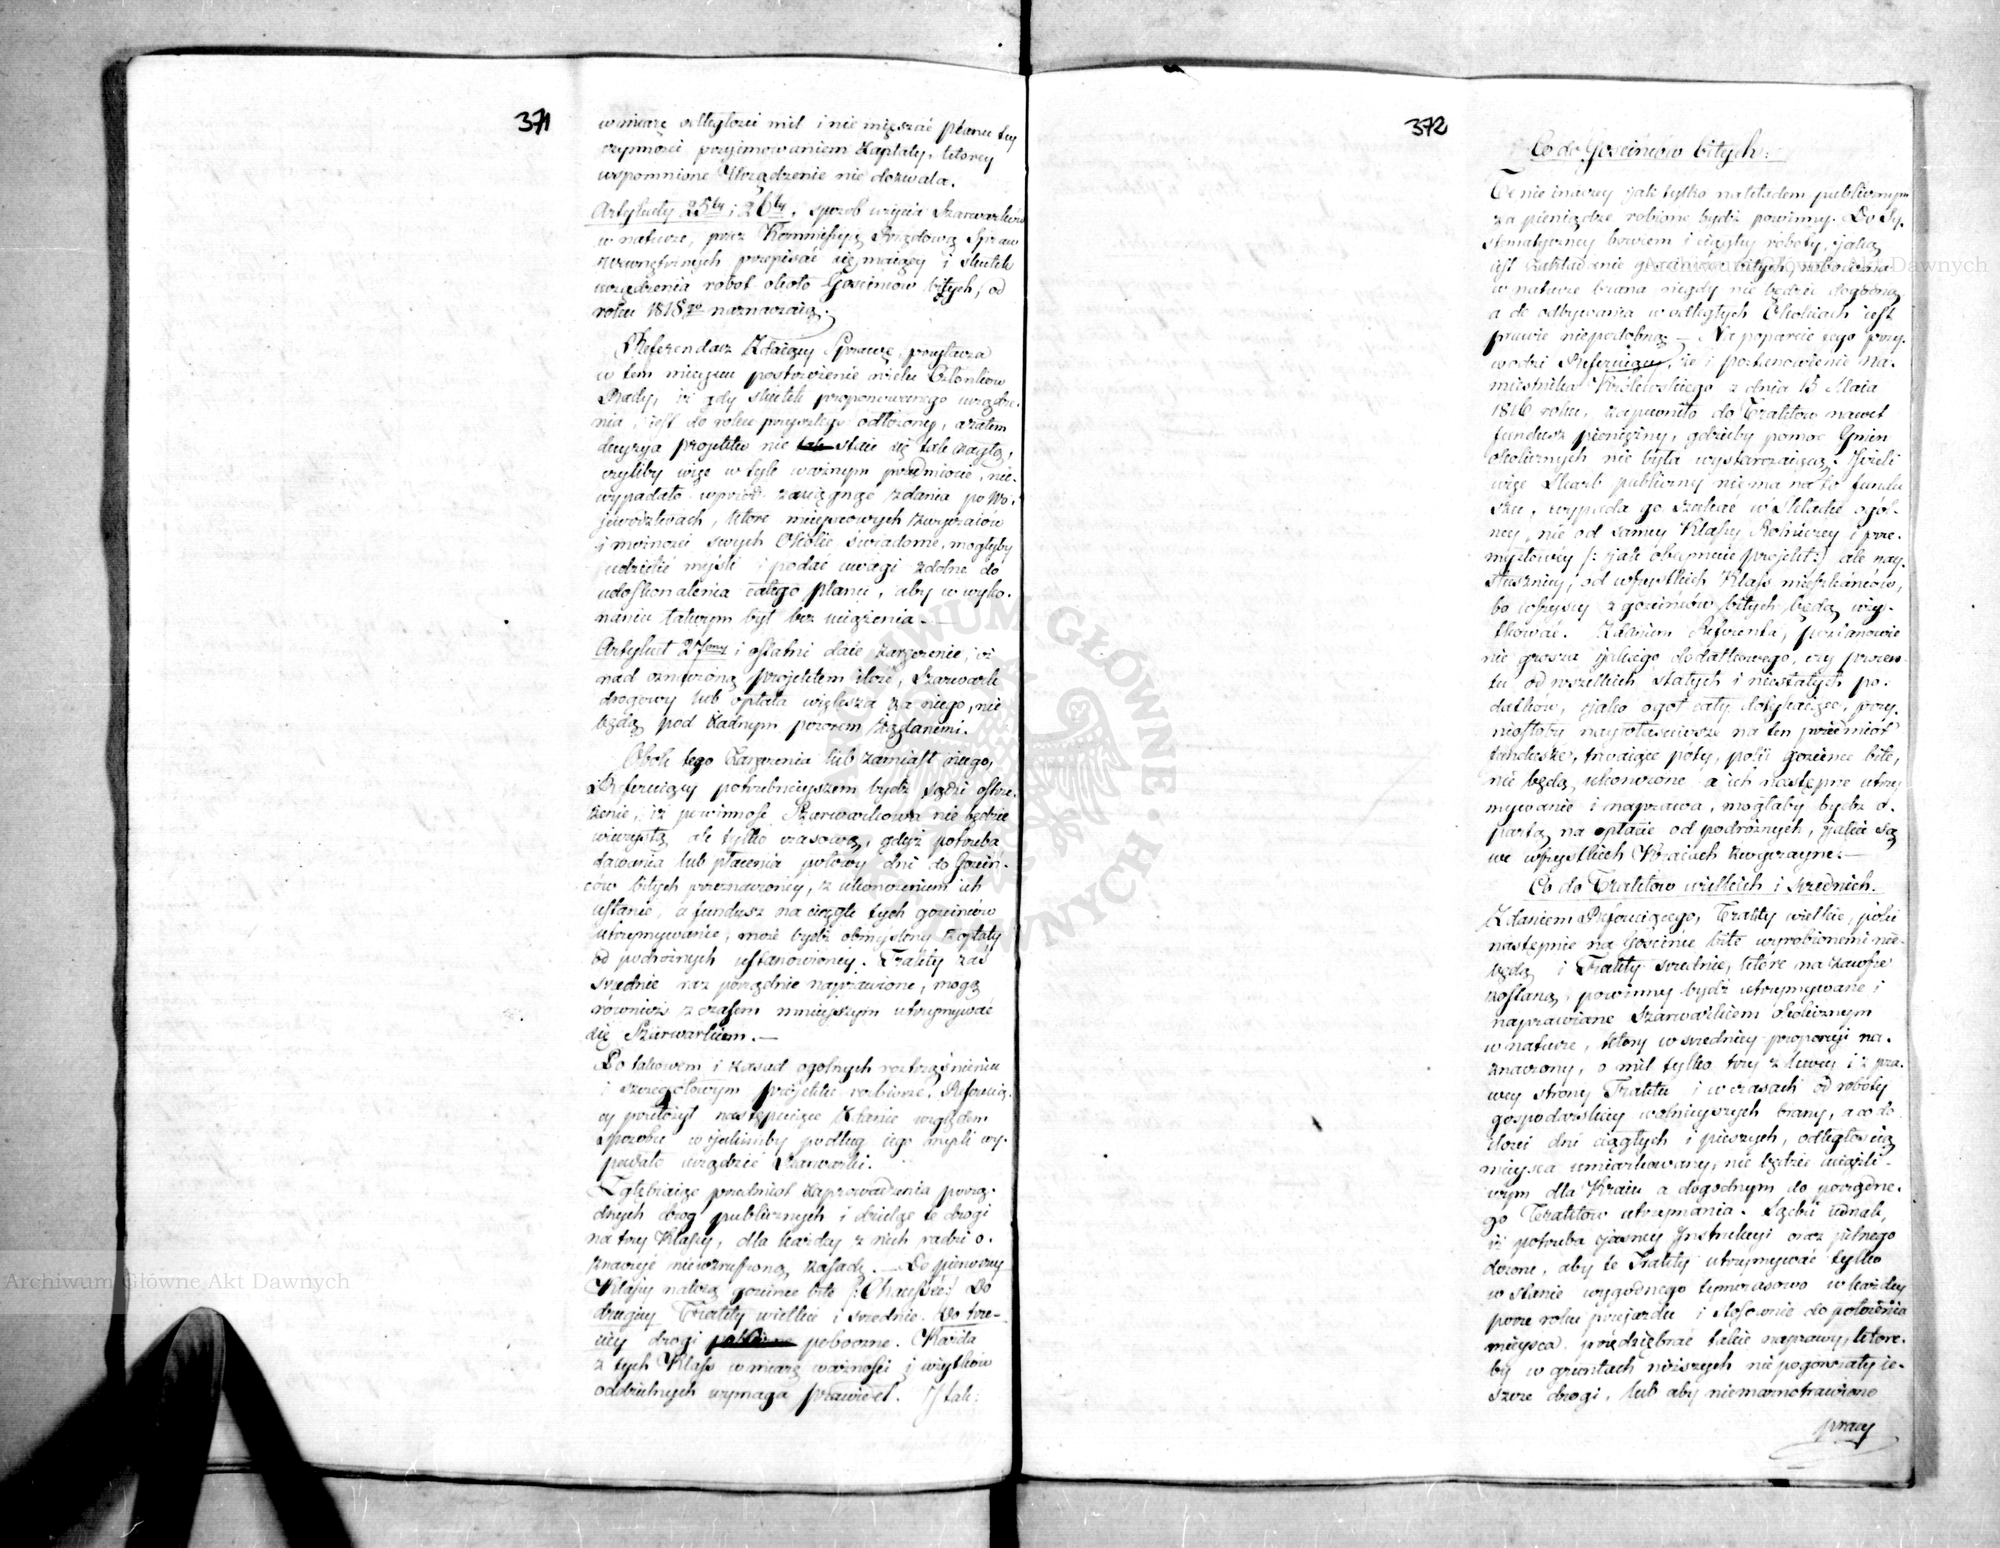 371
w miarę odległości mil i nie mięszać planu tey
czynności przyimowaniem zapłaty, ktorey
wspomnione Urządzenie nie dozwala.
Artykuły 25ty i 26ty, sposob użycia Szarwarków
w naturze, przez Kommissyią Rządową Spraw
Wewnętrznych przepisać się maiący i skutek
urządzenia robot około Gościńcow bitych, od
roku 1818go naznaczaią.
Referendarz Zdaiący Sprawę, przytacza
w tem mieyscu postrzeżenie wielu Członkow
Rady, iż gdy skutek proponowanego urządze-
nia, iest do roku przyszłego odłożony, a zatem
decyzya projektu nie staie się tak nagłą,
czyliby więc w tyle ważnym przedmiocie, nie-
wypadało wprzód zasięgnąć zdania po Wo-
jewodztwach, ktore mieyscowych zwyczaiow
i możności swych Okolic swiadome, mogłyby
udzielić myśli i podać uwagi zdolne do
udoskonalenia całego planu, aby w wyko-
naniu łatwym był bez uciążenia.—
Artykuł 27my i ostatni daie zaręczenie, iż
nad oznaczoną projektem ilość, Szarwark
drogowy lub opłata większa za niego, nie
będą pod żadnym pozorem żądanemi.
Obok tego Zaręczenia lub zamiast niego,
Referuiący potrzebnieyszem bydź sądzi ostrze-
żenie, iż powinność Szarwarkowa nie będzie
wieczystą ale tylko czasową, gdyż potrzeba
dawania lub płacenia połowy dni do Gościń-
ców bitych przeznaczoney, z ukończeniem ich
ustanie, a fundusz na ciągłe tych gościńców
utrzymywanie, może bydź obmyślony z opłaty
od podróżnych ustanowioney. Trakty zaś
srednie raz porządnie naprawione, mogą
również z czasem mnieyszym utrzymywać
się Szarwarkiem.—
Po takowem i zasad ogolnych roztrząśnieniu
i szczegołowym projektu rozbiorze, Referuią-
cy położył następuiące Zdanie względem
sposobu w jakimby podług iego myśli wy-
padało urządzić Szarwarki.
Zgłębiaiąc przedmiot zaprowadzenia porzą-
dnych drog publicznych i dzieląc te drogi
na trzy Klassy, dla każdey z nich radzi o-
znaczyć niewzruszoną zasadę.— Do pierwszey
Klassy należą gościńce bite /: Chaussée :/ Do
drugiey Trakty wielkie i srednie. Do trze-
ciey drogi poboczne. Każda
z tych Klass w miarę ważności i użytków
oddzielnych wymaga prawideł. I tak:
372
Co do Gościńcow bitych:
Te nie inaczey jak tylko nakładem publicznym
za pieniądze robione bydź powinny. Do Sy-
stematyczney bowiem i ciągłey roboty, jaką
iest zakładanie gościńców bitych, robocizna
w naturze brana nigdy nie będzie dogodną
a do odbywania w odległych Okolicach iest
prawie niepodobną.— Na poparcie tego przy-
wodzi Referuiący, że i postanowienie Na-
miestnika Królewskiego z dnia 13 Maia
1816 roku, zapewniło do Traktow nawet
fundusz pieniężny, gdzieby pomoc Gmin
okolicznych nie była wystarczaiącą. Jeżeli
więc Skarb publiczny nie ma na to fundu
szu, wypada go szukać w Składce ogol-
ney, nie od samey Klassy Rolniczey i prze-
mysłowey /: jak obeymuie projekt :/ ale nay-
słuszniey, od wszystkich Klass mieszkańców,
bo wszyscy z gościńców bitych będą uży-
tkować. Zdaniem Referenta, postanowie
nie grosza jakiego dodatkowego, czy procen-
tu od wszelkich stałych i niestałych po-
datków, jako ogoł cały dotykaiące, przy-
niosłoby naywłaściwsze na ten przedmiot
fundusze, trwaiące poty, poki gościńce bite,
nie będą ukończone a ich następne utrzy
mywanie i naprawa, mogłaby bydź o-
partą na opłacie od podróżnych, jakie są
we wszystkich Kraiach zwyczayne.—
Co do Traktow wielkich i srednich.
Zdaniem Referuiącego, Trakty wielkie, poki
następnie na Gościńce bite wyrobionemi nie-
będą i Trakty srednie, które na zawsze
zostaną, powinny bydź utrzymywane i
naprawiane Szarwarkiem okolicznym
w naturze, ktory w sredniey proporcyi na-
znaczony, o mil tylko trzy z lewey i z pra-
wey strony Traktu i w czasach od roboty
gospodarskiey wolnieyszych brany, a co do
ilości dni ciągłych i pieszych, odległością
mieysca umiarkowany, nie będzie uciążli-
wym dla Kraiu a dogodnym do porządne-
go Traktow utrzymania. Sądzi iednak,
iż potrzeba jasney Instrukcyi oraz pilnego
dozoru, aby te Trakty utrzymywać tylko
w stanie wygodnego tymczasowo w każdey
porze roku przejazdu i stosownie do położenia
mieysca przedsiębrać takie naprawy, ktore-
by w gruntach niższych nie pogorszały ie-
szcze drogi, lub aby niemarnotrawiono
pracy
Archiwum Główne Akt Dawnych
Archiwum Główne Akt Dawnych
ARCHIWUM GŁÓWNE AKT DAWNYCH